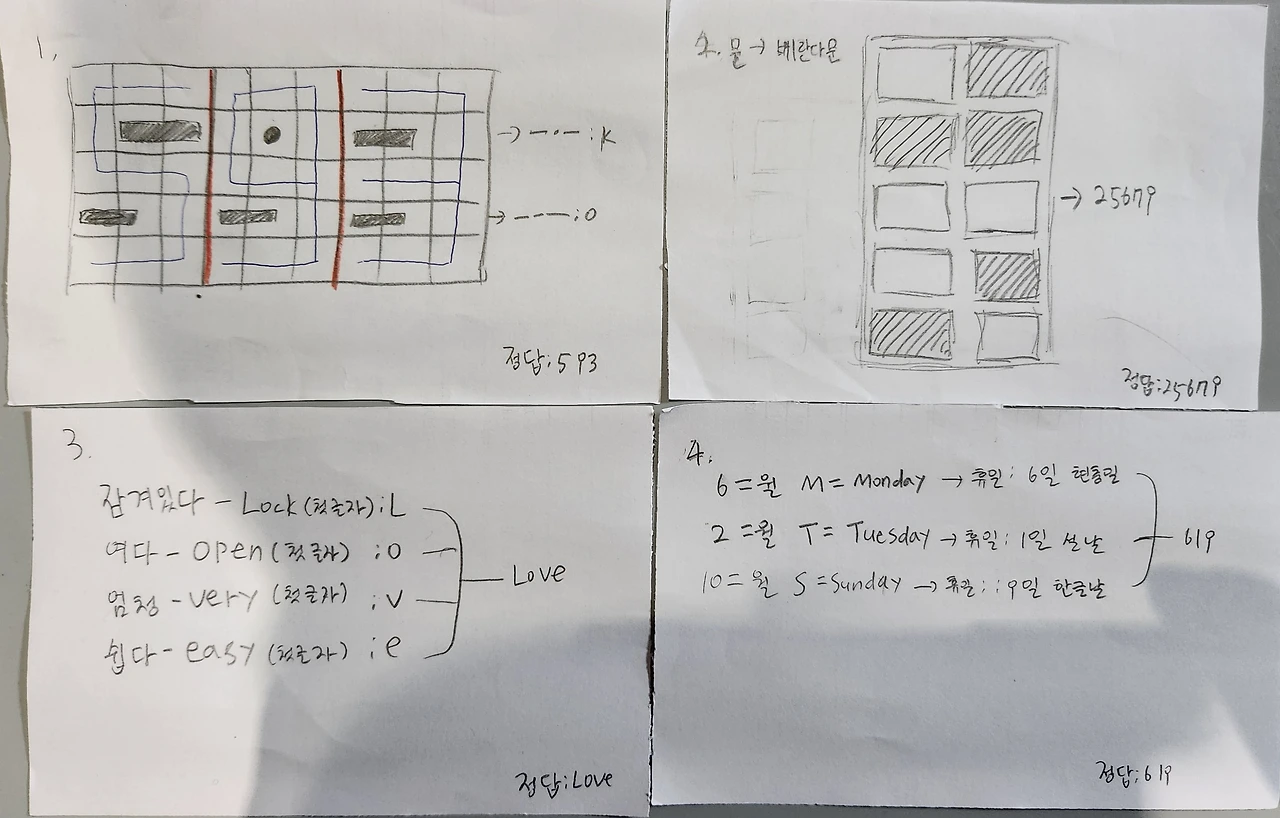 1.
→ ㅡ·ㅡ : K
→ ㅡㅡㅡ : O
정답 : 593
2. 문 → 베란다문
→ 25679
정답 : 25679
3.
잠겨있다 - Lock (첫글자) ; L
여다 - open (첫글자) ; o
엄청 - very (첫글자) ; v
쉽다 - easy (첫글자) ; e
Love
정답 ; Love
4.
6 = 월 M = Monday → 휴일 ; 6일 현충일
2 = 월 T = Tuesday → 휴일 ; 1일 설날
10 = 월 S = Sunday → 휴일 ; 9일 한글날
619
정답 ; 619